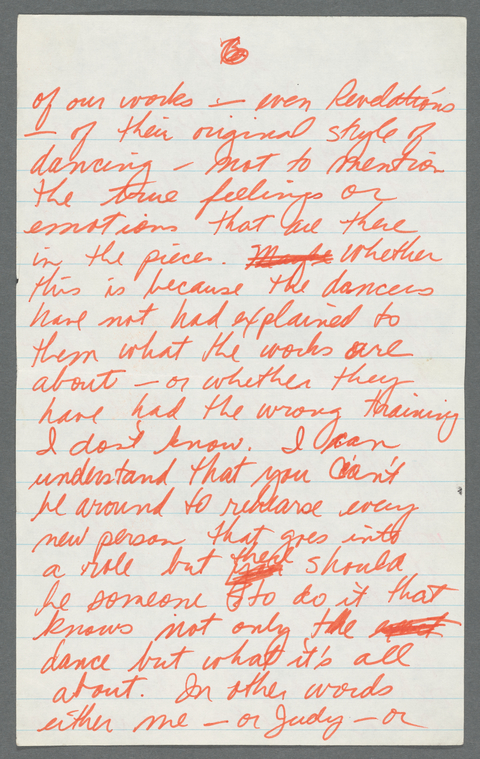 6
of our works — even Revelations
— of their original style of
dancing — not to mention
the true feelings or
emotions that are there
in the pieces. Maybe Whether
this is because the dancers
have not had explained to
them what the works are
about — or whether they
have had the wrong training
I don't know. I can
understand that you can't
be around to rehearse every
new person that goes into
a role but there should
be someone to do it that
knows not only the exact
dance but what it's all
about. In other words
either me — or Judy — or